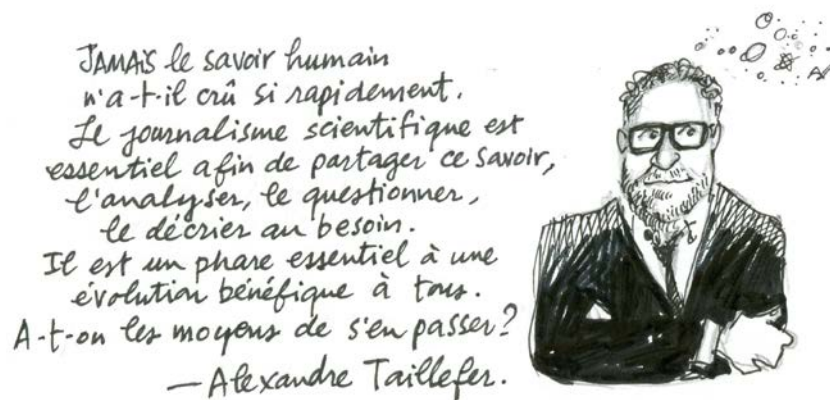 JAMAIS le savoir humain
n'a-t-il crû si rapidement.
Le journalisme scientifique est
essentiel afin de partager ce savoir,
l'analyser, le questionner,
le décrier au besoin.
Il est un phare essentiel à une
évolution bénéfique à tous.
A-t-on les moyens de s'en passer?
— Alexandre Taillefer.